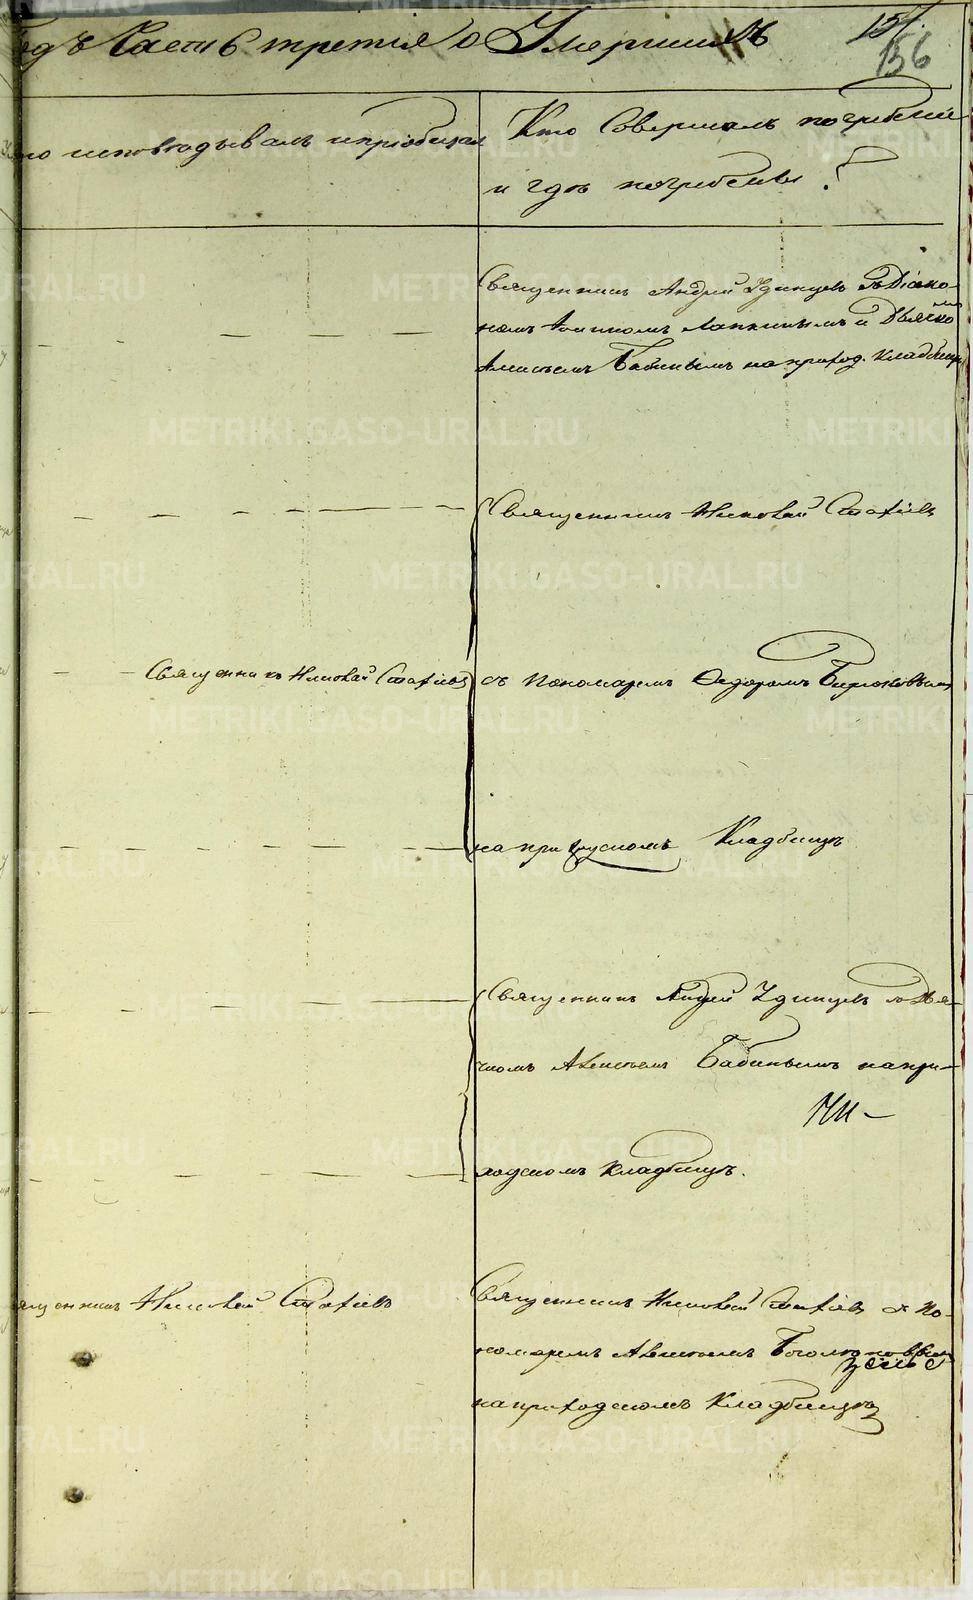 Часть третія о Умершихъ 157.
156
исповѣдывалъ и пріобщалъ
Кто Совершалъ погребеніе
и гдѣ погребены?
Священникъ Андрей Удинцевъ съ Діако-
номъ и Дьячко
Бабинымъ на приход. Кладбищѣ
Священникъ Николай Стахіевъ
Священникъ Николай Стахіевъ
съ Пономаремъ Федоромъ Бирюковымъ
на приходскомъ Кладбищѣ
Священникъ Андрей Удинцевъ съ Дья-
чкомъ Алексѣемъ Бабинымъ на при-
ходскомъ Кладбищѣ.
Николай Стахіевъ
Священникъ Николай Стахіевъ съ По-
номаремъ Алексѣемъ
на приходскомъ Кладбищѣ
METRIKI.GASO-URAL.RU